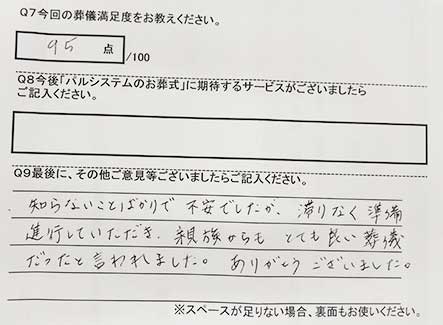 Q7今回の葬儀満足度をお教えください。
95 点 /100
Q8今後「パルシステムのお葬式」に期待するサービスがございましたら
ご記入ください。
Q9最後に、その他ご意見等ございましたらご記入ください。
知らないことばかりで 不安でしたが、滞りなく準備
進行していただき、親族からも とても良い葬儀
だったと言われました。ありがとうございました。
※スペースが足りない場合、裏面もお使いください。